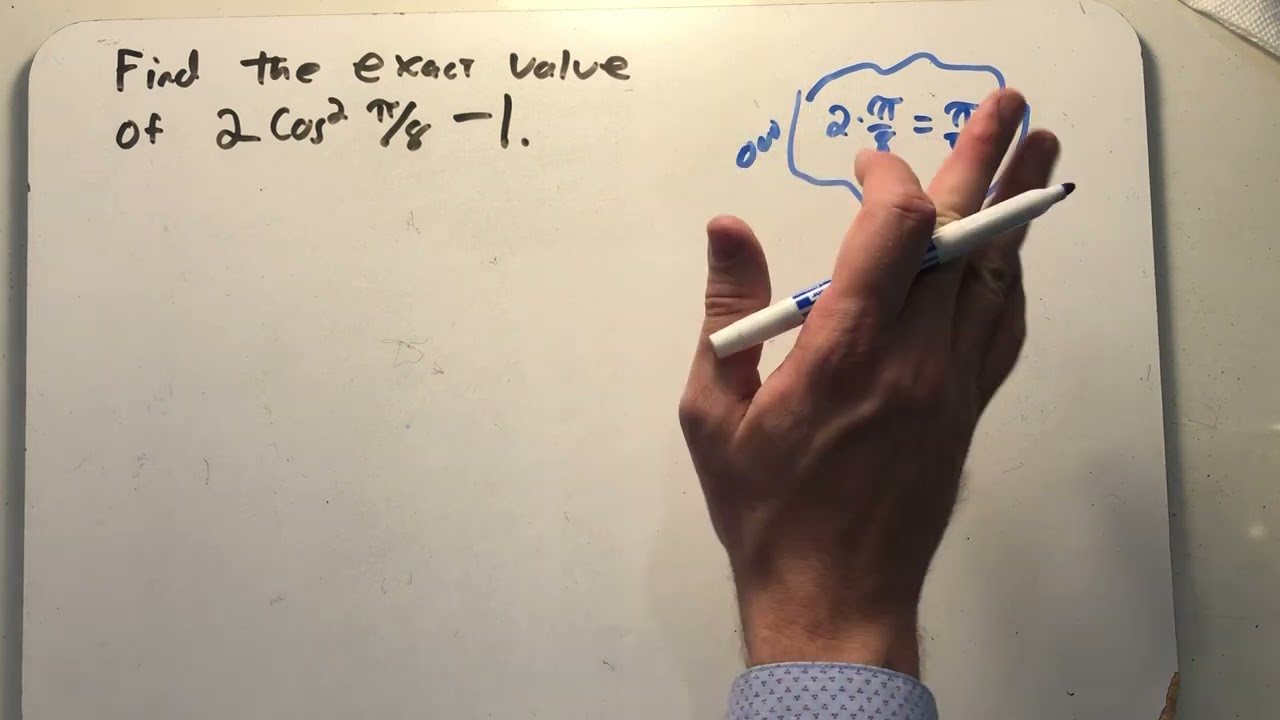 Find the exact value
of 2 Cos² π/8 - 1.
2 · π/8 = π